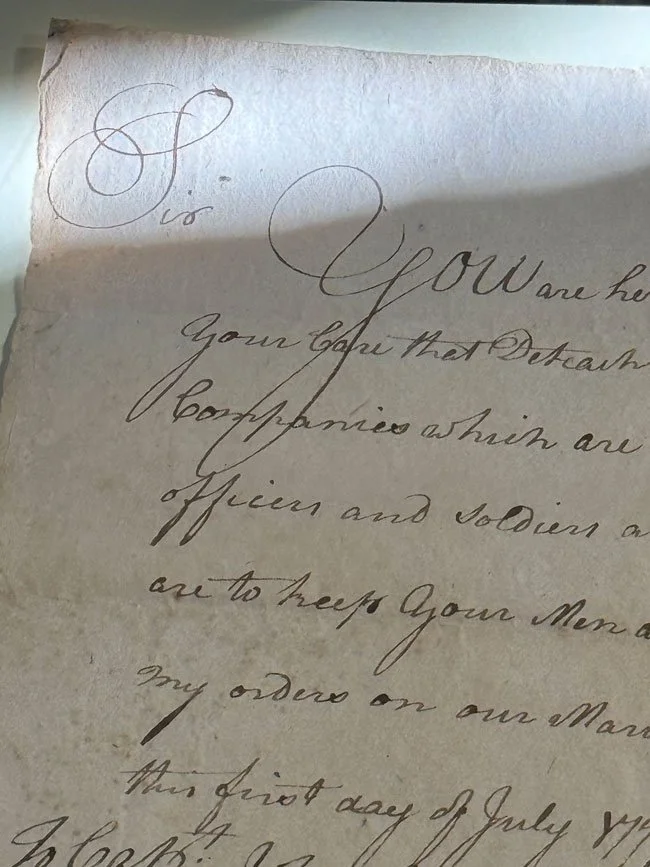 Sir
YOU are he
Your Care that Detach
Companies which are
officers and soldiers a
are to keep Your Men a
my orders on our Mar
this first day of July 177
To Capt.